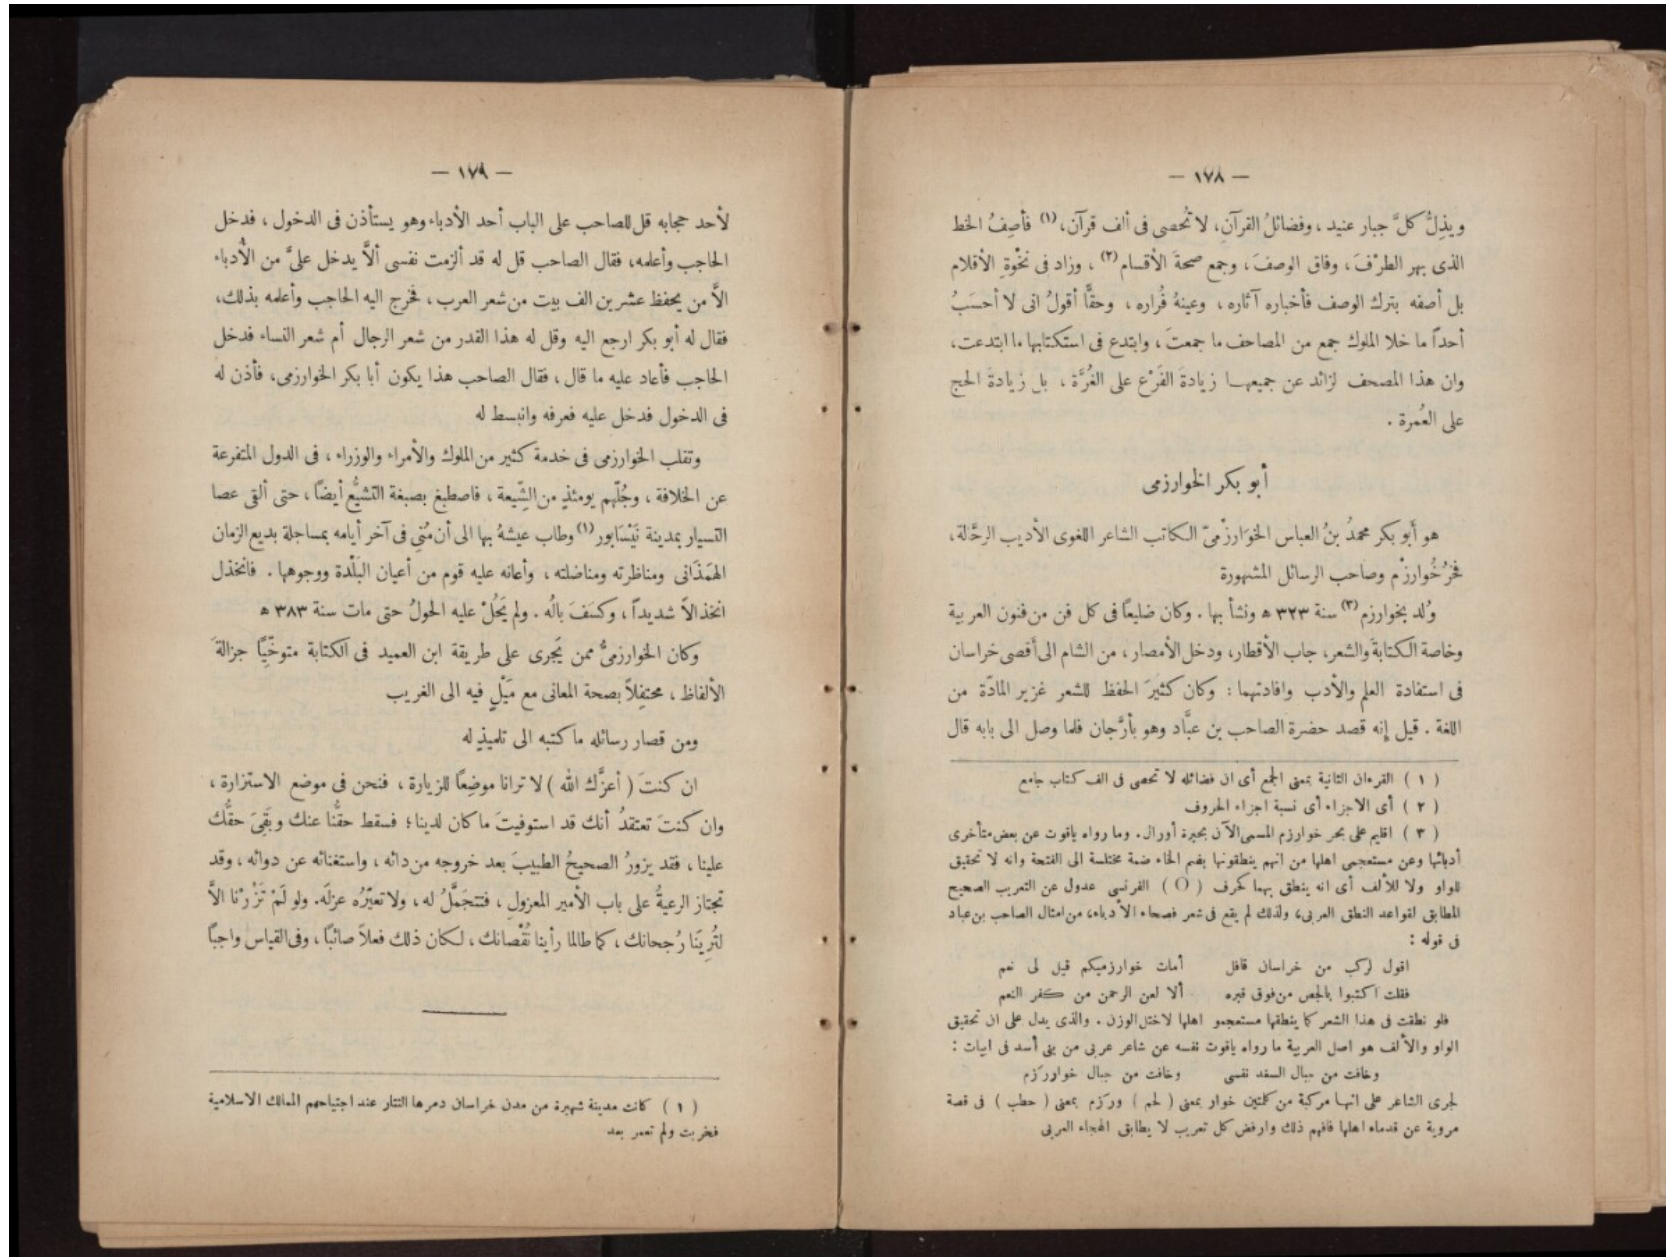 — ١٧٨ —
ويذِلُّ كلَّ جبار عنيد، وفضائلُ القرآنِ، لا تُحصى فى ألف قرآن، (١) فأصِفُ الخط
الذى بهر الطرْفَ، وفاق الوصفَ، وجمع صحةَ الأقسام (٢) ، وزاد فى نخْوةِ الأقلام
بل أصفه بترك الوصف فأخباره آثاره ، وعينهُ فُراره ، وحقًّا أقولُ انى لا أحسَبُ
أحداً ما خلا الملوك جمع من المصاحف ما جمعتَ، وابتدع فى استكتابها ما ابتدعت،
وان هذا المصحف لزائد عن جميعها زيادةَ الفَرْع على الغُرَّة ، بل زيادةَ الحج
على العُمرة .
أبو بكر الخوارزمى
هو أبو بكر محمدُ بنُ العباس الخوَارزْمىّ الكاتب الشاعر اللغوى الأديب الرحَّالة،
فخرُ خُوارزْم وصاحب الرسائل المشهورة
وُلد بخوارزم (٣) سنة ٣٢٣ ﻫ ونشأ بها . وكان ضليعًا فى كل فن من فنون العربية
وخاصة الكتابةَ والشعر، جاب الأقطار، ودخل الأمصار، من الشام الى أقصى خراسان
فى استفادة العلم والأدب وافادتهما : وكان كثيرَ الحفظ للشعر غزير المادّة من
اللغة . قيل إنه قصد حضرة الصاحب بن عبَّاد وهو بأرَّجان فلما وصل الى بابه قال
( ١ ) القرءان الثانية بمعنى الجمع أى ان فضائله لا تحصى فى الف كتاب جامع
( ٢ ) أى الاجزاء أى نسبة اجزاء الحروف
( ٣ ) اقليم على بحر خوارزم المسمى الآن بحيرة أورال. وما رواه ياقوت عن بعض متأخرى
أدبائها وعن مستعجمى اهلها من انهم ينطقونها بضم الخاء ضمة مختلسة الى الفتحة وانه لا تحقيق
للواو ولا للألف أى انه ينطق بهما كحرف ( O ) الفرنسى عدول عن التعريب الصحيح
المطابق لقواعد النطق العربى، ولذلك لم يقع فى شعر فصحاء الأدباء، من امثال الصاحب بن عباد
فى قوله :
اقول لركب من خراسان قافل أمات خوارزميكم قيل لى نعم
فقلت اكتبوا بالجص من فوق قبره ألا لعن الرحمن من كفر النعم
فلو نطقت فى هذا الشعر كما ينطقها مستعجمو اهلها لاختل الوزن . والذى يدل على ان تحقيق
الواو والألف هو اصل العربية ما رواه ياقوت نفسه عن شاعر عربى من بنى أسد فى ابيات :
وخافت من جبال السغد نفسى وخافت من جبال خواررزم
لجرى الشاعر على انها مركبة من كلمتين خوار بمعنى ( لحم ) ورزم بمعنى ( حطب ) فى قصة
مروية عن قدماء اهلها فافهم ذلك وارفض كل تعريب لا يطابق الهجاء العربى
— ١٧٩ —
لأحد حجابه قل للصاحب على الباب أحد الأدباء وهو يستأذن فى الدخول ، فدخل
الحاجب وأعلمه، فقال الصاحب قل له قد ألزمت نفسى ألاَّ يدخل علىَّ من الأُدباء
الاَّ من يحفظ عشرين الف بيت من شعر العرب ، فخرج اليه الحاجب وأعلمه بذلك،
فقال له أبو بكر ارجع اليه وقل له هذا القدر من شعر الرجال أم شعر النساء فدخل
الحاجب فأعاد عليه ما قال ، فقال الصاحب هذا يكون أبا بكر الخوارزمى، فأذن له
فى الدخول فدخل عليه فعرفه وانبسط له
وتقلب الخوارزمى فى خدمة كثير من الملوك والأمراء والوزراء ، فى الدول المتفرعة
عن الخلافة ، وجُلّهم يومئذٍ من الشِّيعة ، فاصطبغ بصبغة التشيُّع أيضًا ، حتى ألقى عصا
التسيار بمدينة نَيْسَابور (١) وطاب عيشهُ بها الى أن مُنِى فى آخر أيامه بمساجلة بديع الزمان
الهمَذَانى ومناظرته ومناضلته ، وأعانه عليه قوم من أعيان البَلْدة ووجوهها . فانخذل
انخذالاً شديداً ، وكسَفَ بالُه . ولم يَحُلْ عليه الحولُ حتى مات سنة ٣٨٣ ﻫ
وكان الخوارزمىُّ ممن يَجرى على طريقة ابن العميد فى الكتابة متوخِّيًا جزالةَ
الألفاظ ، محتفِلاً بصحة المعانى مع مَيْلٍ فيه الى الغريب
ومن قصار رسائله ما كتبه الى تلميذٍ له
ان كنتَ ( أعزَّك الله ) لا ترانا موضِعًا للزيارة ، فنحن فى موضع الاستزارة ،
وان كنتَ تعتقدُ أنك قد استوفيتَ ما كان لدينا؛ فسقط حقُّنا عنك وبَقِىَ حقُّك
علينا ، فقد يزورُ الصحيحُ الطبيبَ بعد خروجه من دائه ، واستغنائه عن دوائه ، وقد
تجتاز الرعيةُ على باب الأمير المعزولِ ، فتتجَمَّلُ له ، ولا تعيّرُه عزلَه. ولو لَمْ تَزُرْنا الاَّ
لتُرِيَنَا رُجحانك ، كما طالما رأينا نُقْصانك ، لكان ذلك فعلاً صائبًا ، وفى القياس واجبًا
( ١ ) كانت مدينة شهيرة من مدن خراسان دمرها التتار عند اجتياحهم الممالك الاسلامية
فخربت ولم تعمر بعد